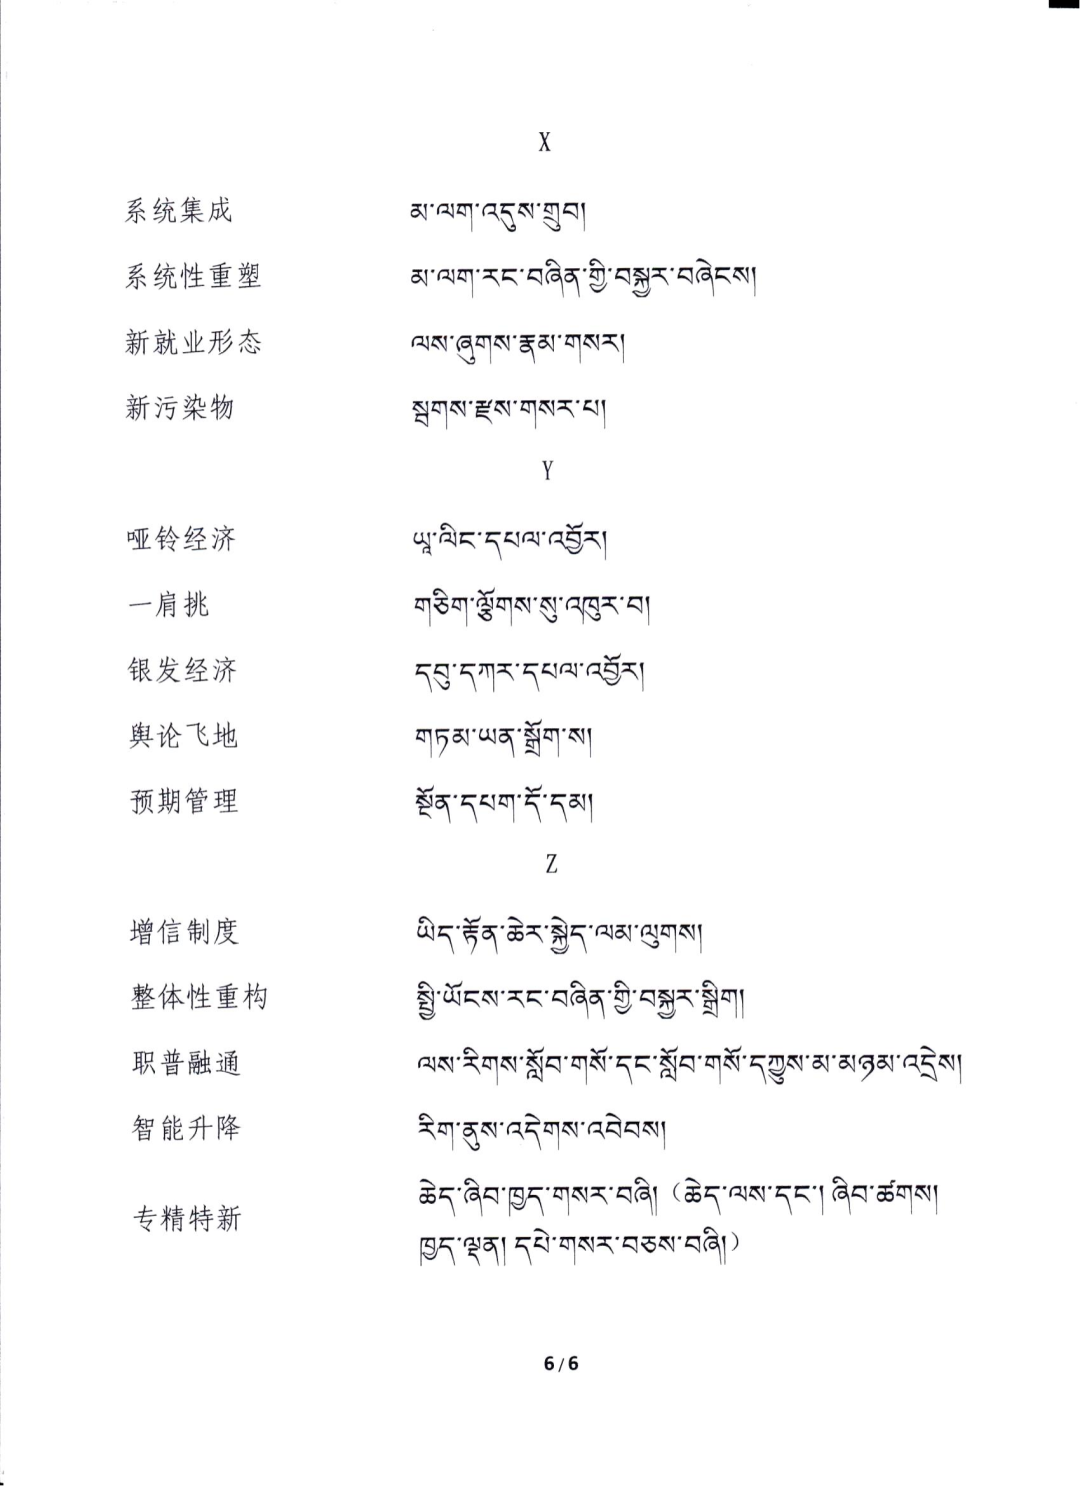 X
系统集成 མ་ལག་འདུས་གྲུབ།
系统性重塑 མ་ལག་རང་བཞིན་གྱི་བསྐྱར་བཞེངས།
新就业形态 ལས་ཞུགས་རྣམ་གསར།
新污染物 སྦགས་རྫས་གསར་པ།
Y
哑铃经济 ཡཱ་ལིང་དཔལ་འབྱོར།
一肩挑 གཅིག་ལྕོགས་སུ་འཁུར་བ།
银发经济 དབུ་དཀར་དཔལ་འབྱོར།
舆论飞地 གཏམ་ཡན་སྒྲོག་ས།
预期管理 སྔོན་དཔག་དོ་དམ།
Z
增信制度 ཡིད་རྟོན་ཆེར་སྐྱེད་ལམ་ལུགས།
整体性重构 སྤྱི་ཡོངས་རང་བཞིན་གྱི་བསྐྱར་སྒྲིག།
职普融通 ལས་རིགས་སློབ་གསོ་དང་སློབ་གསོ་དཀྱུས་མ་མཉམ་འདྲེས།
智能升降 རིག་ནུས་འདེགས་འབེབས།
专精特新 ཆེད་ཞིབ་ཁྱད་གསར་བཞི།（ཆེད་ལས་དང་། ཞིབ་ཚགས།
ཁྱད་ལྡན། དཔེ་གསར་བཅས་བཞི།）
6/6